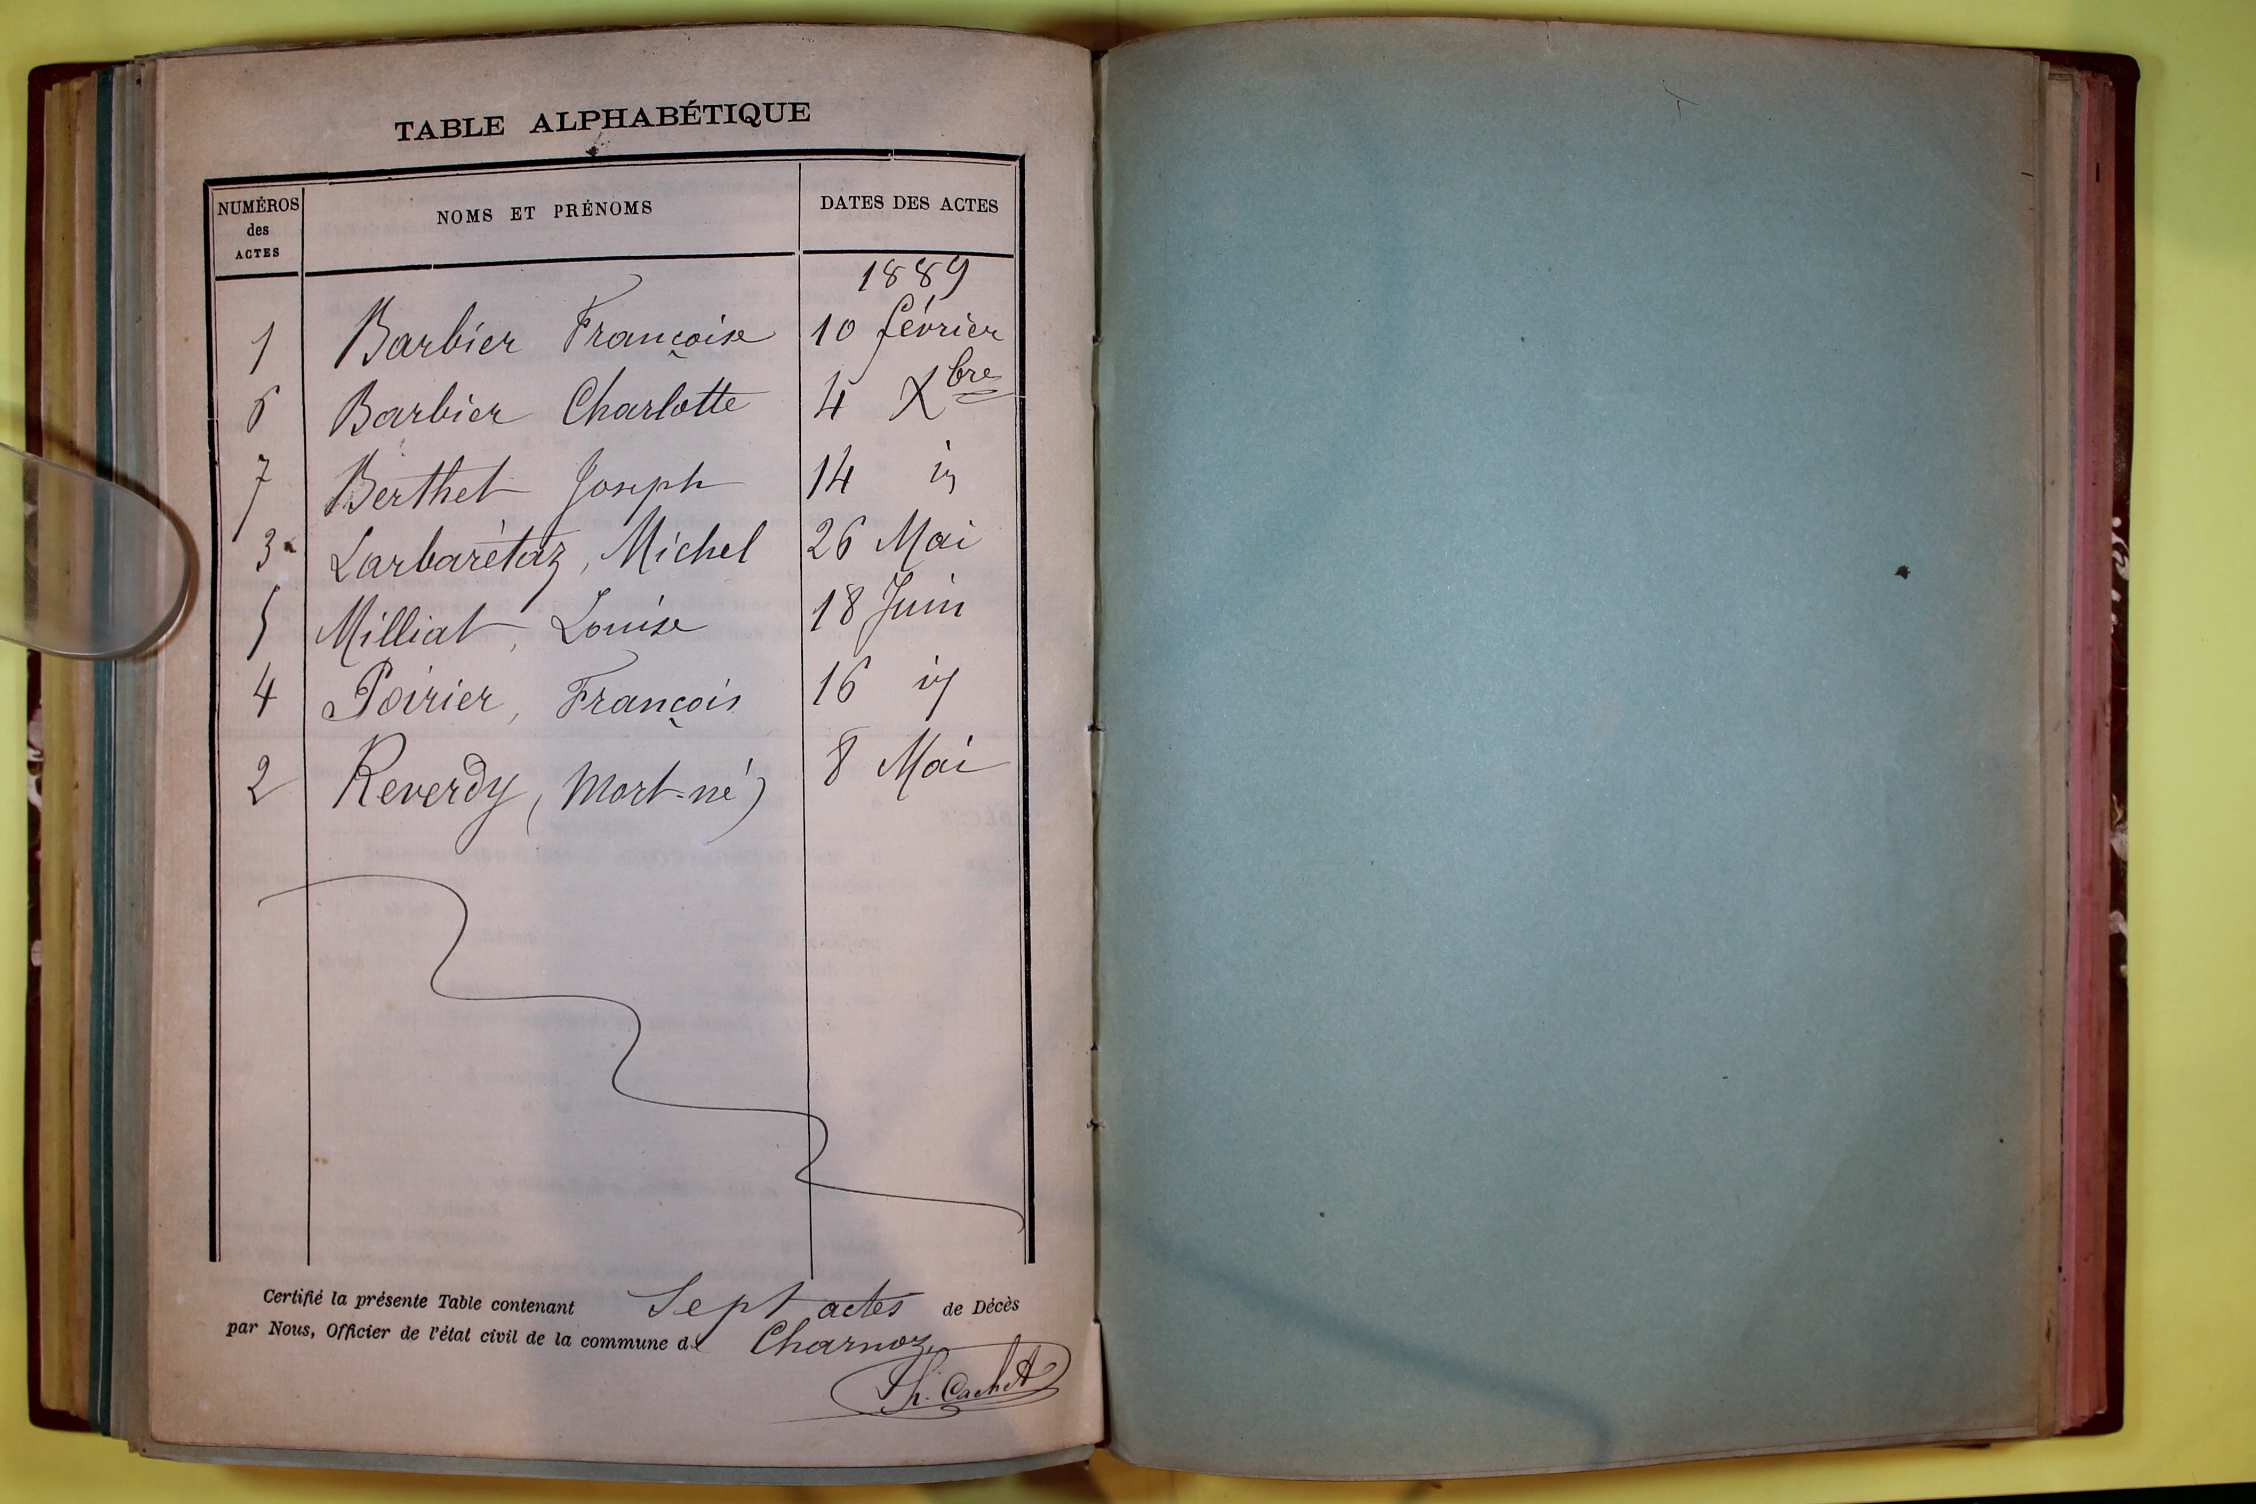 TABLE ALPHABÉTIQUE
NUMÉROS des ACTES NOMS ET PRÉNOMS DATES DES ACTES
1889
1 Barbier Françoise 10 février
6 Barbier Charlotte 4 Xbre
7 Berthet Joseph 14 id
3 Larbarétaz, Michel 26 Mai
5 Milliat, Louise 18 Juin
4 Poirier, François 16 id
2 Reverdy (Mort-né) 8 Mai
Certifié la présente Table contenant Sept actes de Décès
par Nous, Officier de l'état civil de la commune de Charnoz
Ph. Cachet